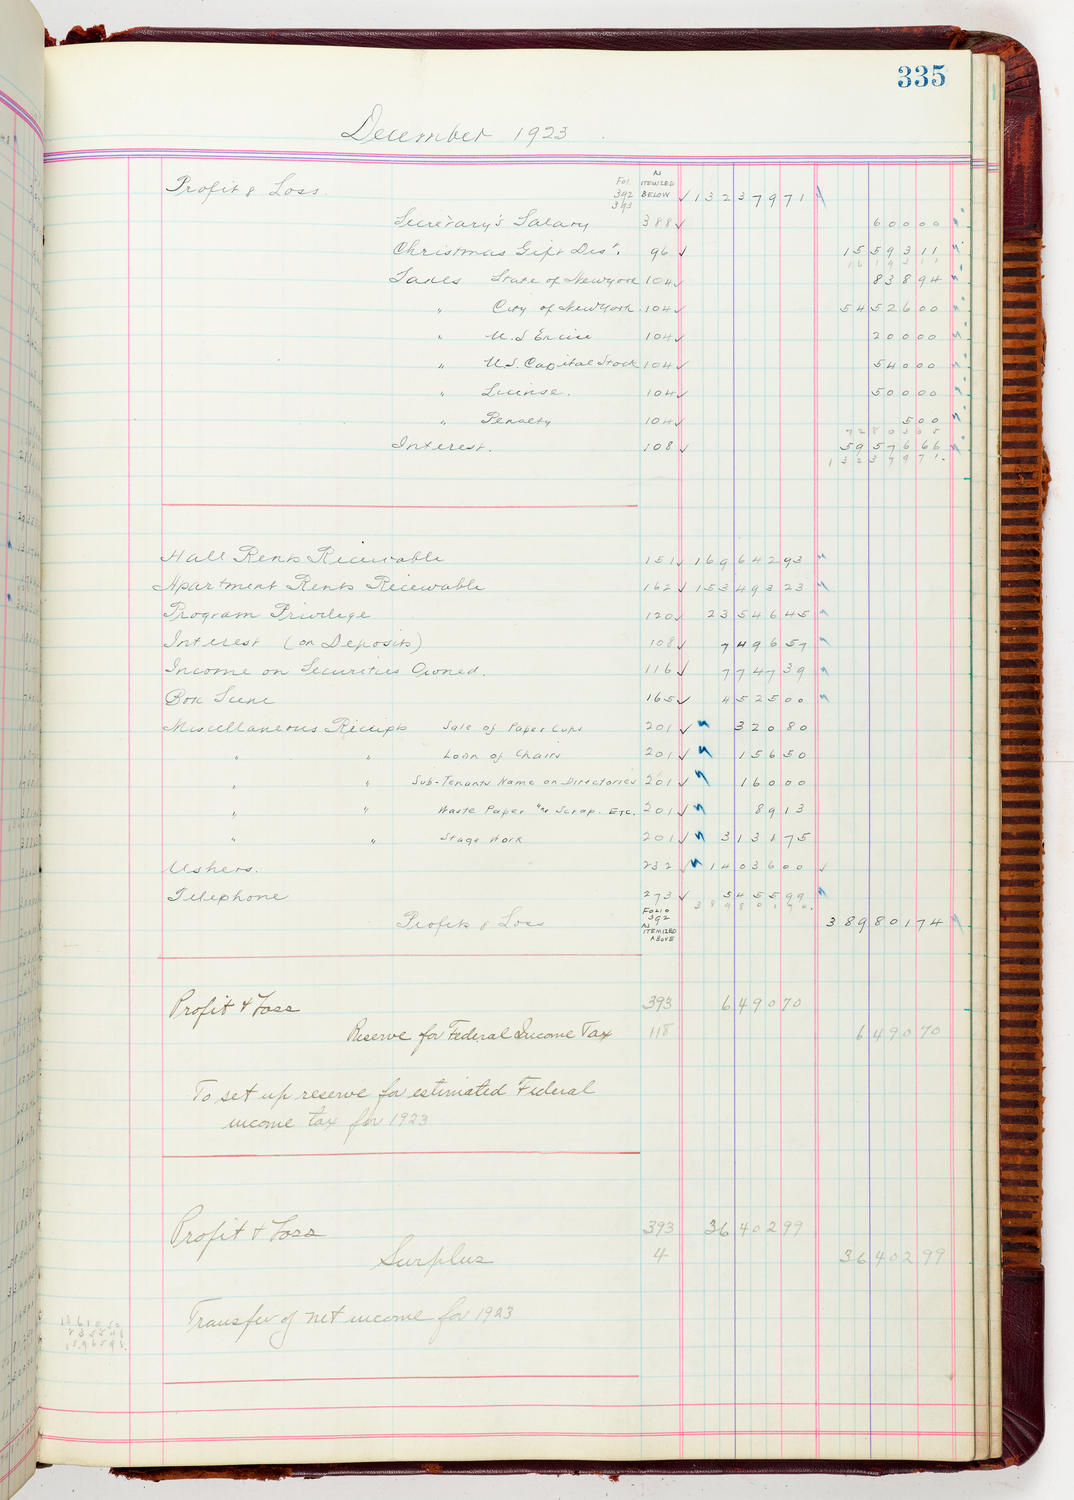 335
December 1923
Profit & Loss. Fol. 392 393 As Itemized Below ✓ 13237971
Secretary's Salary 388✓ 60000
Christmas Gift Dist. 96 ✓ 1559311
1619311
Taxes State of New York 104✓ 83894
" City of New York 104✓ 5452600
" U.S Excise 104✓ 20000
" U.S. Capital Stock 104✓ 54000
" License. 104✓ 50000
" Penalty 104✓ 500
7280305
Interest. 108✓ 5957666
13237971.
Hall Rents Receivable 151✓ 16964293
Apartment Rents Receivable 162✓ 15349323
Program Privilege 120✓ 2354645
Interest (on Deposits) 108✓ 749657
Income on Securities Owned. 116✓ 774739
Box Rent 165✓ 452500
Miscellaneous Receipts Sale of Paper Cups 201✓ 32080
" " Loan of Chairs 201✓ 15650
" " Sub-Tenants Name on Directories 201✓ 16000
" " Waste Paper Scrap. Etc. 201✓ 8913
" " Stage Work 201✓ 313175
Ushers. 232✓ 1403600 ✓
Telephone 273✓ 545599
38980174.
Profits & Loss Folio 392 As Itemized Above 38980174
Profit & Loss 393 649070
Reserve for Federal Income Tax 118 649070
To set up reserve for estimated Federal
income tax for 1923
Profit & Loss 393 3640299
Surplus 4 3640299
Transfer of net income for 1923